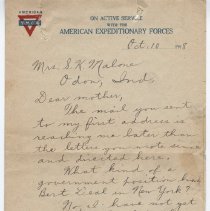 AMERICAN
Y.M.C.A.
ON ACTIVE SERVICE
WITH THE
AMERICAN EXPEDITIONARY FORCES
Oct. 18 1918
Mrs. S. K. Malone
Odon, Ind.
Dear mother,
The mail you sent
to my first address is
reaching me later than
the letters you wrote since
and directed here.
What kind of a
government position has
Bert Deal in New York?
No, I have not yet